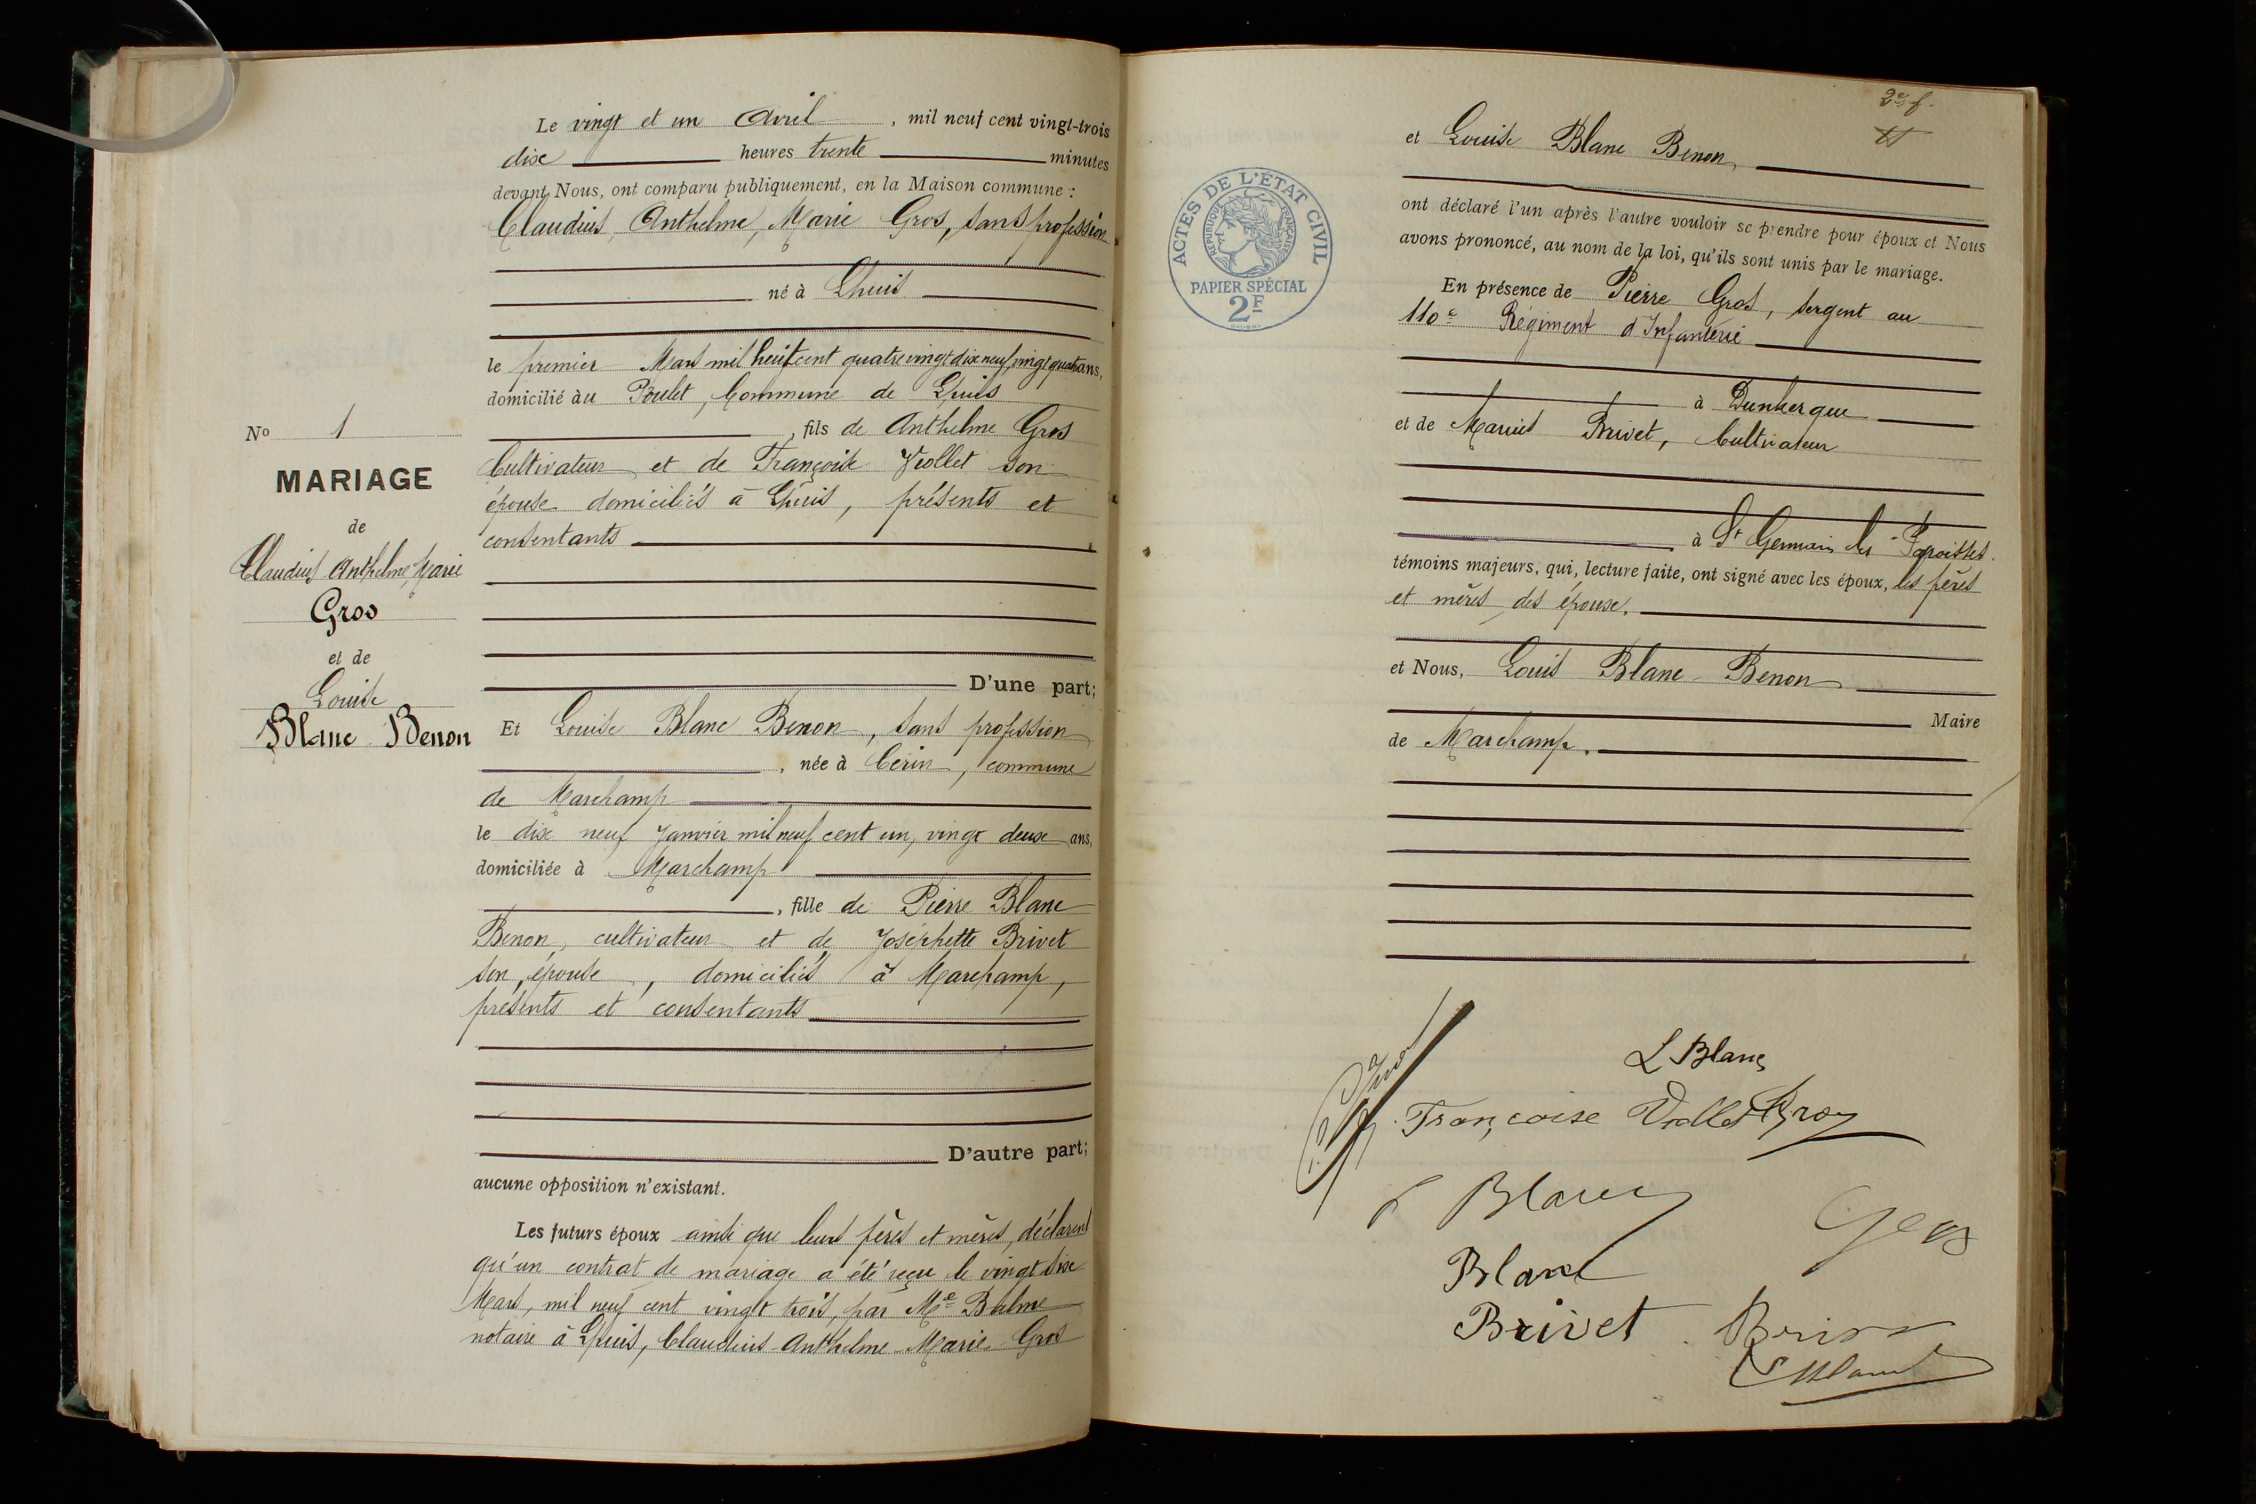 Le vingt et un Avril , mil neuf cent vingt-trois
dix heures trente minutes
devant Nous, ont comparu publiquement, en la Maison commune :
Claudius, Anthelme, Marie Gros, sans profession
né à Lhuis
le premier Mars mil huit cent quatre vingt dix neuf, vingt quatre ans,
domicilié au Poulet, Commune de Lhuis
, fils de Anthelme Gros
Cultivateur et de Françoise Viollet son
épouse domiciliés à Lhuis, présents et
consentants
D'une part;
No 1
MARIAGE
de
Claudius Anthelme, Marie
Gros
et de
Louise
Blanc Benon
Et Louise Blanc Benon, sans profession
, née à Cerin, commune
de Marchamp
le dix neuf Janvier mil neuf cent un, vingt deux ans,
domiciliée à Marchamp
, fille de Pierre Blanc
Benon, cultivateur et de Joséphette Brivet
son épouse, domiciliés à Marchamp,
présents et consentants
D'autre part;
aucune opposition n'existant.
Les futurs époux ainsi que leurs pères et mères, déclarent
qu'un contrat de mariage a été reçu le vingt six
Mars, mil neuf cent vingt trois, par Me Balme
notaire à Lhuis, Claudius Anthelme Marie Gros
2e f.
et Louise Blanc Benon,
ACTES DE L'ÉTAT CIVIL
RÉPUBLIQUE FRANÇAISE
PAPIER SPÉCIAL
2F
ont déclaré l'un après l'autre vouloir se prendre pour époux et Nous
avons prononcé, au nom de la loi, qu'ils sont unis par le mariage.
En présence de Pierre Gros, sergent au
110e Régiment d'Infanterie
à Dunkerque
et de Marius Brivet, Cultivateur
à St Germain les Paroisses.
témoins majeurs, qui, lecture faite, ont signé avec les époux, les pères
et mères des épouse.
et Nous, Louis Blanc Benon
Maire
de Marchamp.
L Blanc
Françoise Viollet Gros
Blanc
Gros
Blanc
Brivet